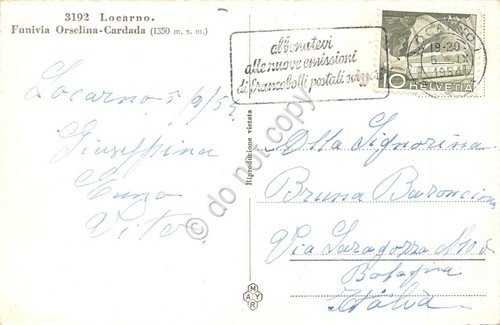 3192 Locarno.
Funivia Orselina-Cardada (1350 m. s. m.)
abbonatevi
alle nuove emissioni
di francobolli postali svizzeri
LOCARNO 1
19-20
5. IX
1954
10 HELVETIA
Locarno 5/9/54
Giuseppina
Enzo
Vito
Riproduzione vietata
Alla Signorina
Bruna Baroncini
Via Saragozza N
Bologna
Italia
MAYR
do not copy